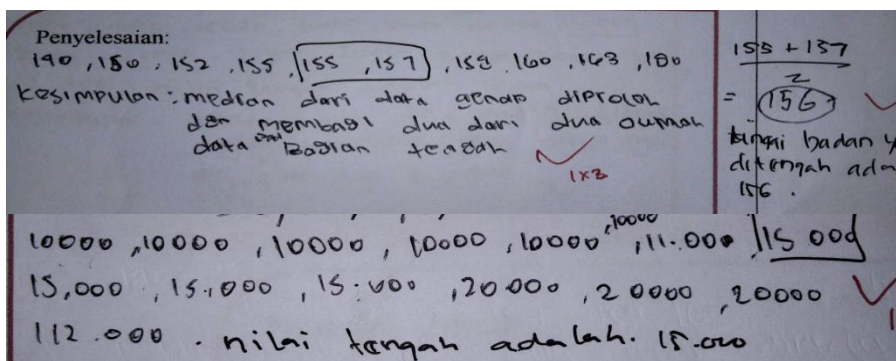 Penyelesaian:
140, 150, 152, 155, 155, 157, 158, 160, 163, 180
Kesimpulan: median dari data genap diproloh
dgn membagi dua dari dua oumah
data bagian tengah
1x3
155 + 157
2
= 156
tinggi badan y
ditengah ada
156.
10000, 10000, 10000, 10000, 10000, 10000, 11.000 15 000
15,000, 15.000, 15.000, 20.000, 20000, 20000
112.000. nilai tengah adalah. 15.000